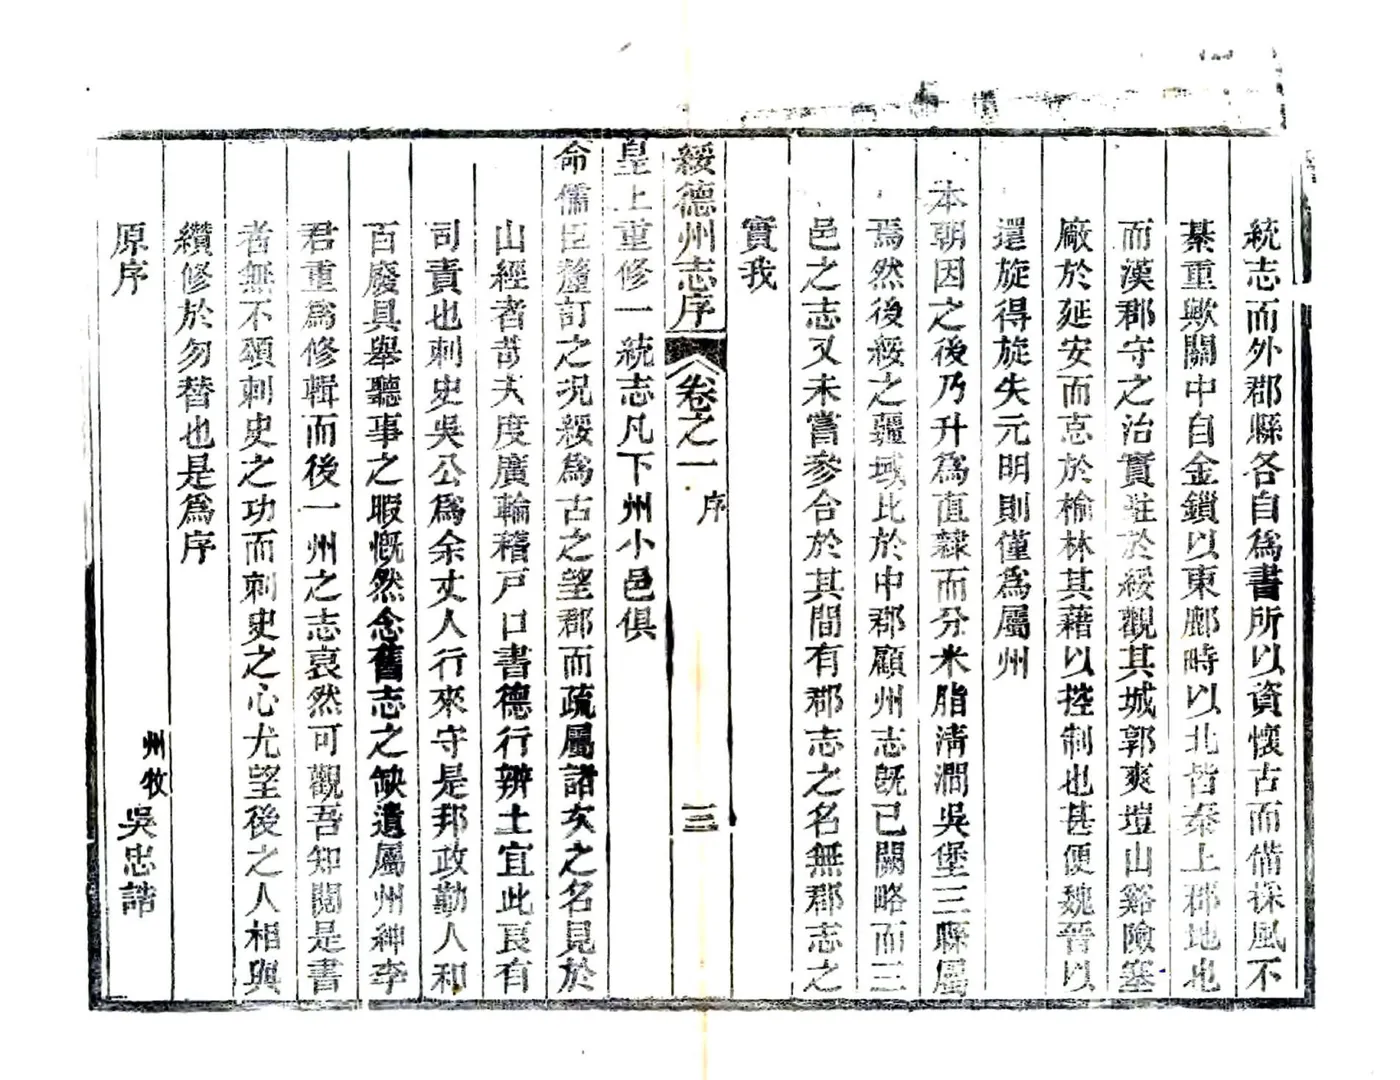 統志而外郡縣各自為書所以資懷古而備採風不
綦重歟關中自金鎖以東鄜畤以北皆秦上郡地也
而漢郡守之治實駐於綏觀其城郭爽塏山谿險塞
廠於延安而忘於榆林其藉以控制也甚便魏晉以
還旋得旋失元明則僅為屬州
本朝因之後乃升為直隸而分米脂清澗吳堡三縣屬
焉然後綏之疆域比於中郡顧州志旣已闕略而三
邑之志又未嘗參合於其間有郡志之名無郡志之
實我
綏德州志序 卷之一 序 三
皇上重修一統志凡下州小邑俱
命儒臣釐訂之况綏為古之望郡而疏屬諸次之名見於
山經者哉夫度廣輪稽戸口書德行辨土宜此良有
司責也刺史吳公為余丈人行來守是邦政勤人和
百廢具舉聽事之暇慨然念舊志之缺遺屬州紳李
君重為修輯而後一州之志裒然可觀吾知閱是書
者無不頌刺史之功而刺史之心尤望後之人相與
纘修於勿替也是為序
原序 州牧 吳忠誥